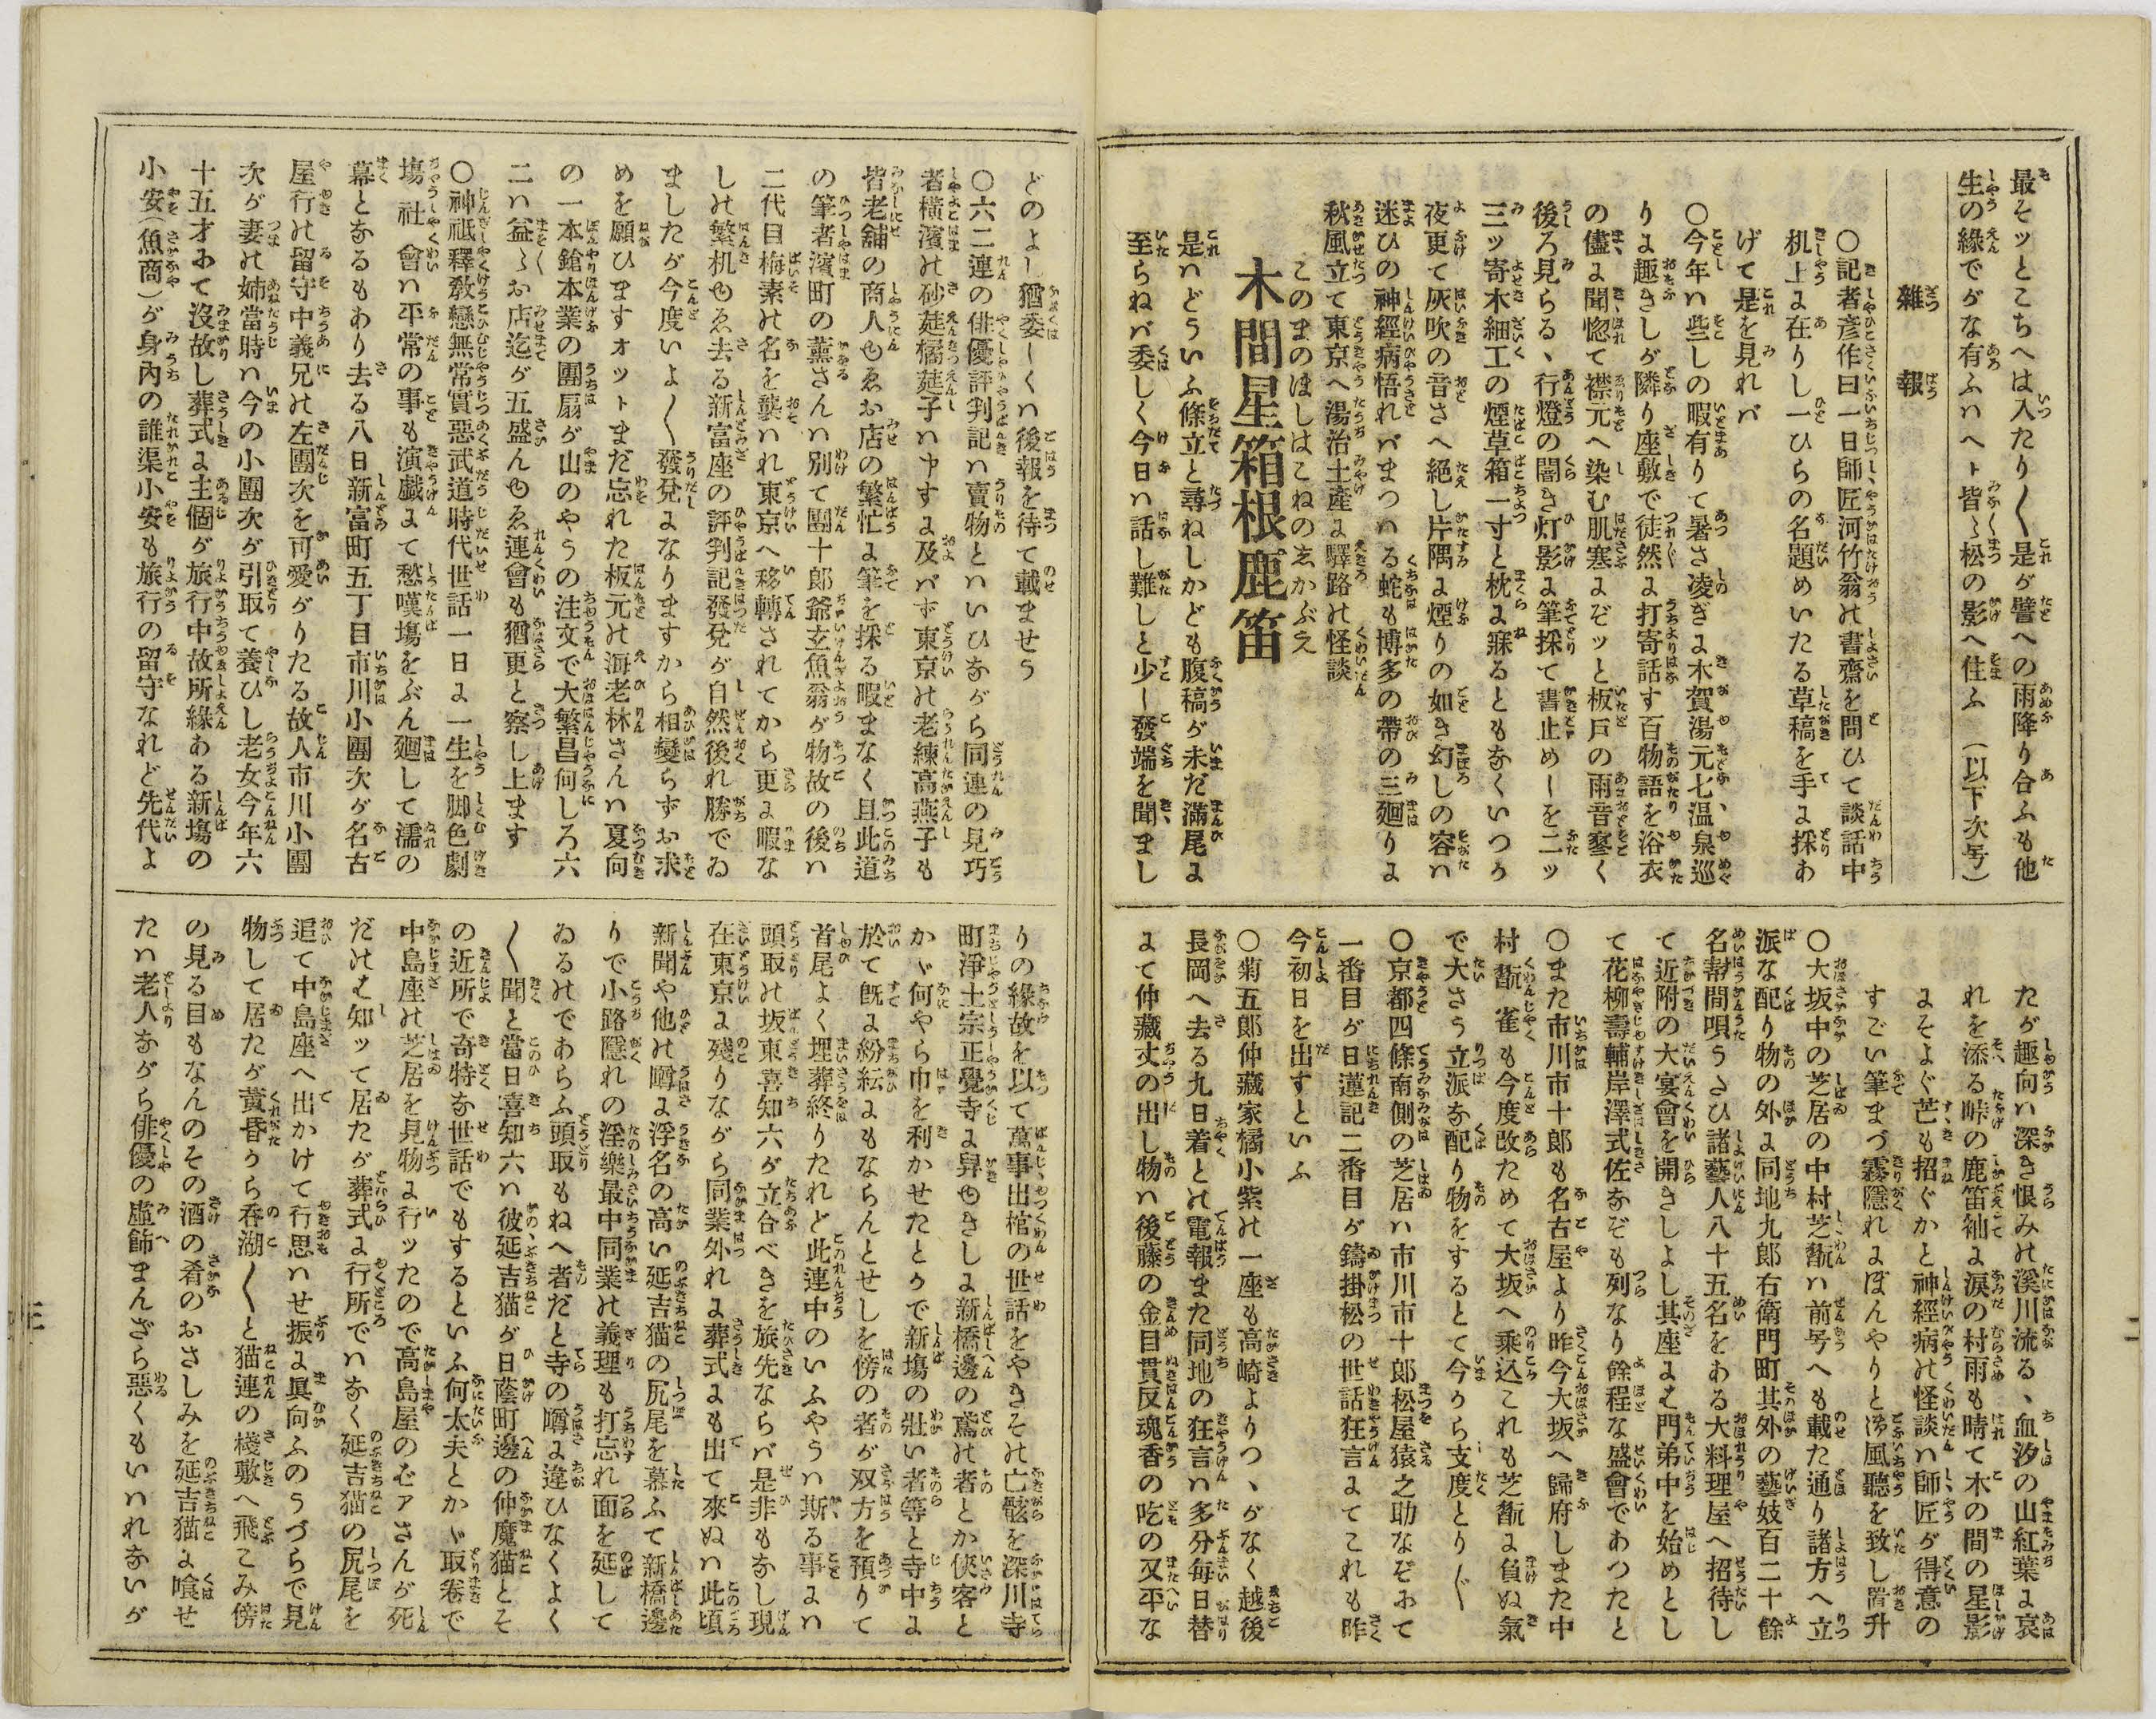 最そッとこちへは入たり〳〵是が譬への雨降り合ふも他
生の緣でがな有ふハヘト皆〻松の影へ住ふ（以下次号）
雜報
〇記者彦作曰一日師匠河竹翁の書齋を問ひて談話中
机上に在りし一ひらの名題めいたる草稿を手に採あ
げて是を見れバ
〇今年ハ些しの暇有りて暑さ凌ぎに木賀湯元七温泉巡
りに趣きしが隣り座敷で徒然に打寄話す百物語を浴衣
の儘に聞惚て襟元へ染む肌寒にぞッと板戸の雨音塞く
後ろ見らるヽ行燈の闇き灯影に筆採て書止めーを二ッ
三ッ寄木細工の煙草箱一寸と枕に寐るともなくいつか
夜更て灰吹の音さへ絕し片隅に煙りの如き幻しの容ハ
迷ひの神經病悟れバまつハる蛇も博多の帶の三廻りに
秋風立て東京へ湯治土產に驛路の怪談
このまのほしはこねのゑかぶえ
木間星箱根鹿笛
是ハどういふ條立と尋ねしかども腹稿が未だ滿尾に
至らねバ委しく今日ハ話し難しと少ー發端を聞まし
たが趣向ハ深き恨みの溪川流るヽ血汐の山紅葉に哀
れを添る峠の鹿笛袖に淚の村雨も晴て木の間の星影
にそよぐ芒も招ぐかと神經病の怪談ハ師匠が得意の
すごい筆まづ霧隱れにぼんやりと凉風聽を致し置升
〇大坂中の芝居の中村芝翫ハ前号へも載た通り諸方へ立
派な配り物の外に同地九郎右衛門町其外の藝妓百二十餘
名幇間唄うさひ諸藝人八十五名をある大料理屋へ招待し
て近附の大宴會を開きしよし其座にも門弟中を始めとし
て花柳壽輔岸澤式佐なども列なり餘程な盛會であつたと
〇また市川市十郎も名古屋より昨今大坂へ歸府しまた中
村翫雀も今度改ためて大坂へ乘込これも芝翫に負ぬ氣
で大さう立派な配り物をするとて今から支度とり〴〵
〇京都四條南側の芝居ハ市川市十郎松屋猿之助なぞおて
一番目が日蓮記二番目が鑄掛松の世話狂言にてこれも昨
今初日を出すといふ
〇菊五郎仲藏家橘小紫の一座も高崎よりつヽがなく越後
長岡へ去る九日着との電報また同地の狂言ハ多分毎日替
にて仲藏丈の出し物ハ後藤の金目貫反魂香の吃の又平な
どのよー猶委ーくハ後報を待て載ませう
〇六二連の俳優評判記ハ賣物とハいひながら同連の見巧
者橫濱の砂莚橘莚子ハ申すに及バず東京の老練高燕子も
皆老舖の商人ゆゑお店の繁忙に筆を採る暇まなく且此道
の筆者濱町の薫さんハ別て團十郎爺玄魚翁が物故の後ハ
二代目梅素の名を襲ハれ東京へ移轉されてから更に暇な
しの繁机ゆゑ去る新富座の評判記發兌が自然後れ勝でゐ
ましたが今度いよ〳〵發兌になりますから相變らずお求
めを願ひますオットまだ忘れた板元の海老林さんハ夏向
の一本鎗本業の團扇が山のやうの注文で大繁昌何しろ六
二ハ益〻お店迄が五盛んゆゑ連會も猶更と察し上ます
〇神祗釋敎戀無常實惡武道時代世話一日に一生を脚色劇
塲社會ハ平常の事も演戲にて愁嘆塲をぶん廻して濡の
幕となるもあり去る八日新富町五丁目市川小團次が名古
屋行の留守中義兄の左團次を可愛がりたる故人市川小團
次が妻の姉當時ハ今の小團次が引取て養ひし老女今年六
十五才おて沒故し葬式に主個が旅行中故所緣ある新塲の
小安（魚商）が身內の誰渠小安も旅行の留守なれど先代よ
りの緣故を以て萬事出棺の世話をやきその亡骸を深川寺
町淨土宗正覺寺に舁ゆきしに新橋邊の鳶の者とか俠客と
かゞ何やら巾を利かせたとかで新塲の壯い者等と寺中に
於て既に紛紜にもならんとせしを傍の者が双方を預りて
首尾よく埋葬終りたれど此連中のいふやうハ斯る事にハ
頭取の坂東喜知六が立合べきを旅先ならバ是非もなし現
在東京に殘りながら同業外れに葬式にも出て來ぬハ此頃
新聞や他の噂に浮名の高い延吉猫の尻尾を慕ふて新橋邊
りで小路隱れの淫樂最中同業の義理も打忘れ面を延して
ゐるのであらふ頭取もねへ者だと寺の噂に違ひなくよく
〳〵聞と當日喜知六ハ彼延吉猫が日蔭町邊の仲魔猫とそ
の近所で奇特な世話でもするといふ何太夫とかゞ取卷で
中島座の芝居を見物に行ッたので高島屋のばアさんが死
だのも知ッて居たが葬式に行所でハなく延吉猫の尻尾を
追て中島座へ出かけて行思ハせ振に眞向ふのうづらで見
物して居たが黃昏から呑湖〳〵と猫連の棧敷へ飛こみ傍
の見る目もなんのその酒の肴のおさしみを延吉猫に喰せ
たハ老人ながら俳優の虛飾まんざら惡くもいハれないが